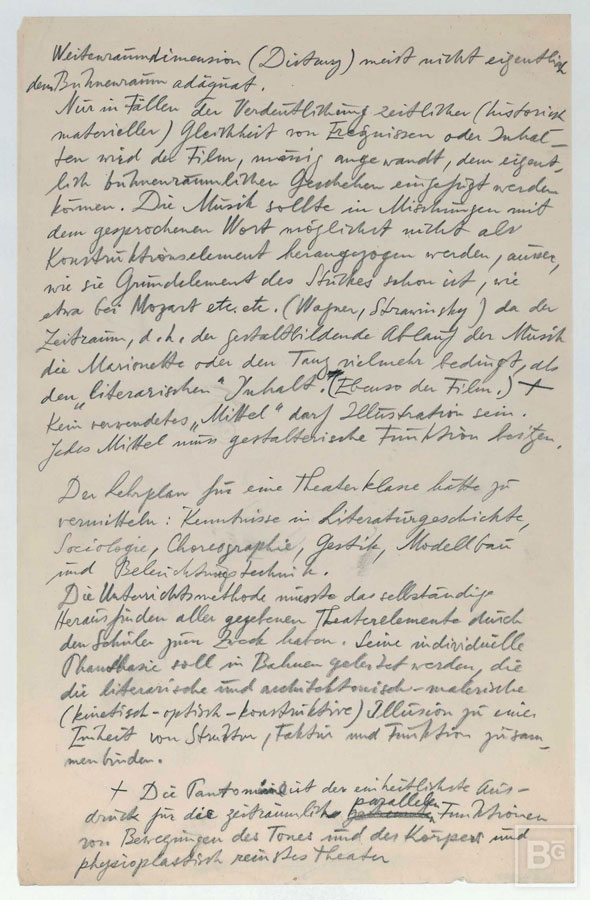 Weitenraumdimension (Distanz) meist nicht eigentlich
dem Bühnenraum adäquat.
Nur in Fällen der Verdeutlichung zeitlicher (historisch
materieller) Gleichheit von Ereignissen oder Inhal-
ten wird der Film, mässig angewandt, dem eigent-
lich bühnenräumlichen Geschehen eingefügt werden
können. Die Musik sollte in Mischungen mit
dem gesprochenen Wort möglichst nicht als
Konstruktionselement herangezogen werden, ausser,
wie sie Grundelement des Stückes schon ist, wie
etwa bei Mozart etc. etc. (Wagner, Strawinsky) da der
Zeitraum, d.h. der gestaltbildende Ablauf der Musik
die Marionette oder den Tanz vielmehr bedingt, als
den „literarischen“ Inhalt. (Ebenso der Film.) +
Kein verwendetes „Mittel“ darf Illustration sein.
Jedes Mittel muss gestalterische Funktion besitzen.
Der Lehrplan für eine Theaterklasse hätte zu
vermitteln: Kenntnisse in Literaturgeschichte,
Sociologie, Choreographie, Gestik, Modellbau
und Beleuchtungstechnik.
Die Unterrichtsmethode müsste das selbständige
Herausfinden aller gegebenen Theaterelemente durch
den Schüler zum Zweck haben. Seine individuelle
Phantasie soll in Bahnen geleitet werden, die
die literarische und architektonisch-malerische
(kinetisch-optisch-konstruktive) Illusion zu einer
Einheit von Struktur, Faktur und Funktion zusam-
menbinden.
+ Die Pantomime ist der einheitlichste Aus-
druck für die zeiträumlich parallelen Funktionen
von Bewegungen des Tones und des Körpers und
physioplastisch reinstes Theater
BG